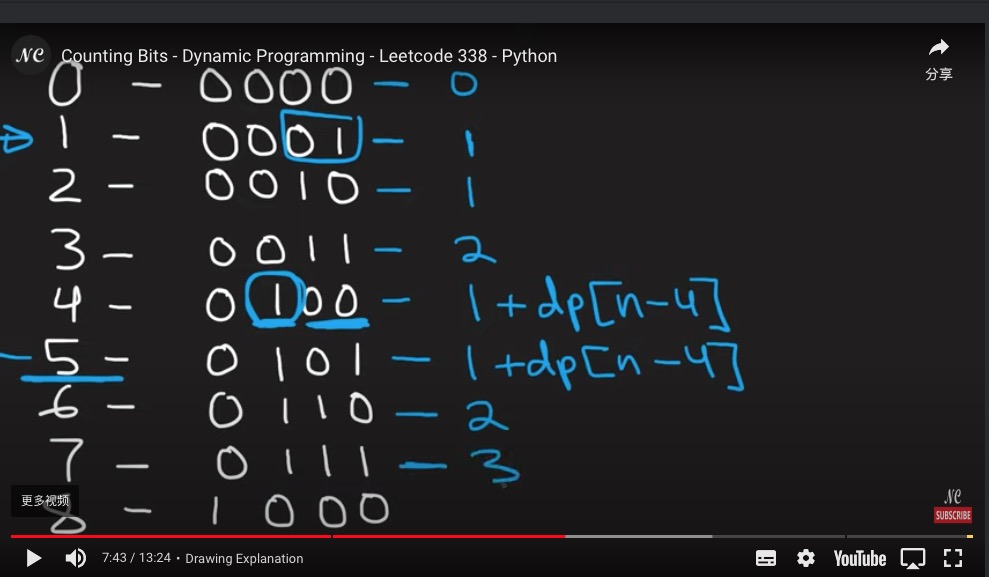 NC Counting Bits - Dynamic Programming - Leetcode 338 - Python
分享
0 - 0000 - 0
1 - 0001 - 1
2 - 0010 - 1
3 - 0011 - 2
4 - 0100 - 1 + dp[n-4]
5 - 0101 - 1 + dp[n-4]
6 - 0110 - 2
7 - 0111 - 3
更多视频
8 - 1000
NC
SUBSCRIBE
7:43 / 13:24 • Drawing Explanation
YouTube